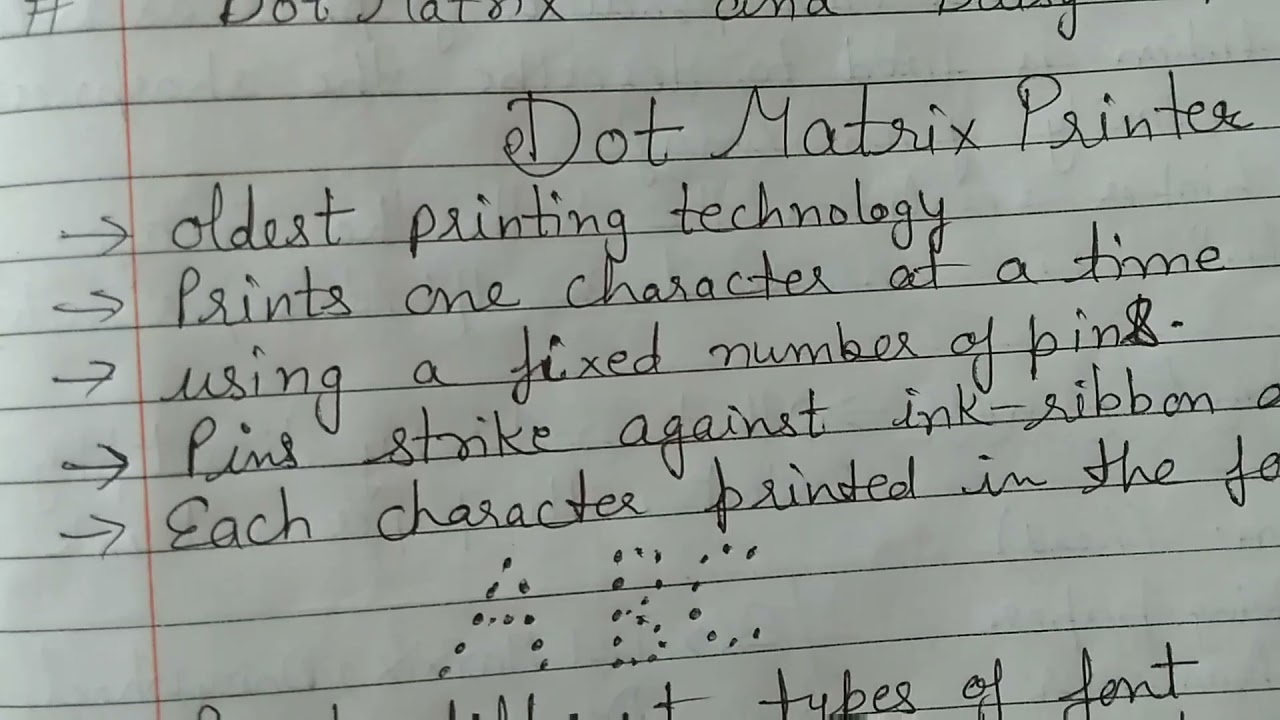 # Dot Matrix and Daisy
Dot Matrix Printer
→ oldest printing technology
→ Prints one character at a time
→ using a fixed number of pins.
→ Pins strike against ink-ribbon
→ Each character printed in the
A B C
types of font